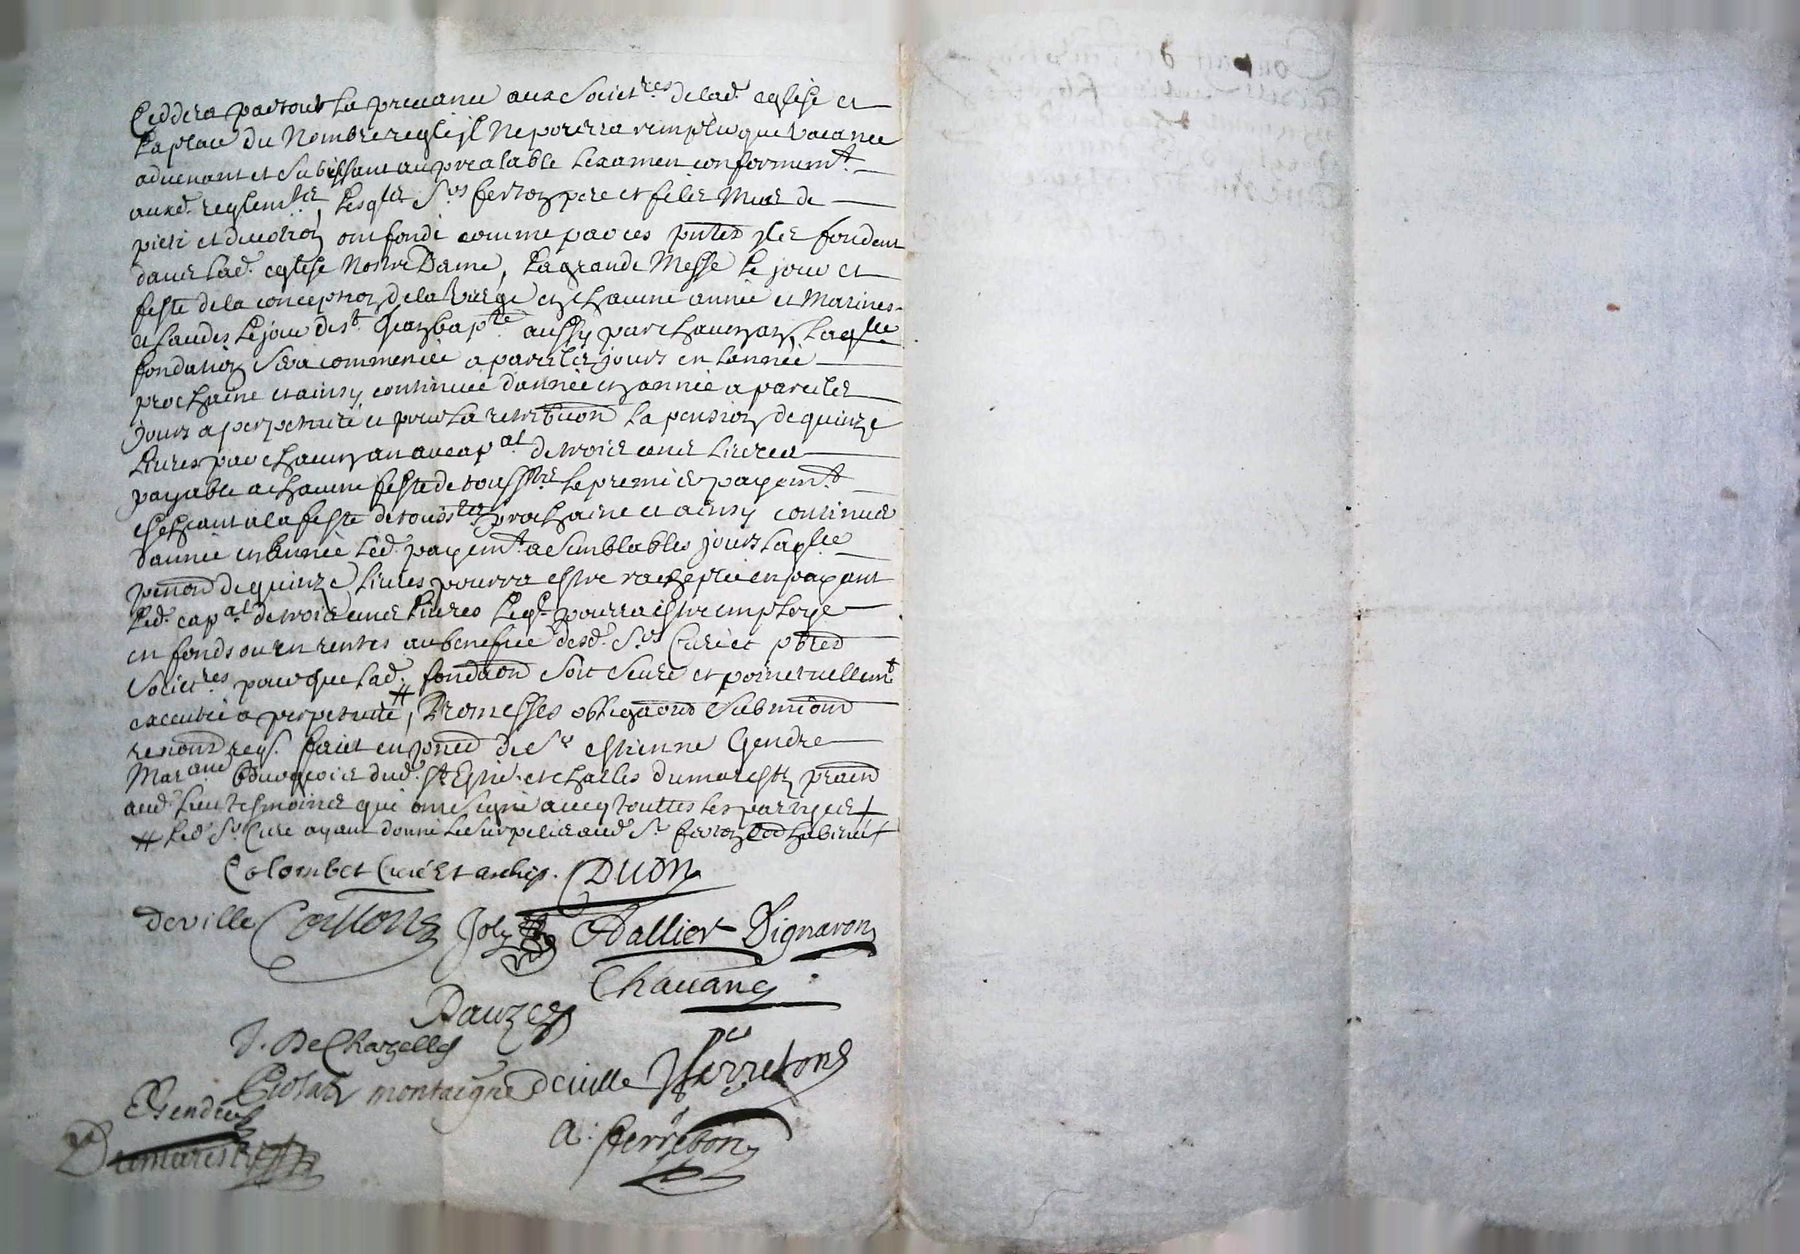 Ceddera partout la preceance aux Societ.res de lad. eglise et
la place du Nombre regle jl ne pourra remplir que vacance
advenant et subissant au prealable lexamen conformem.t
auxd. reglem.tz, lesq.lz S.rs ferreton pere et filz Muz de
pieté et devotion ont fondé comme par ces pntes jlz fondent
dans lad. eglise Nostre Dame, la grande Messe le jour et
feste de la conception de la Vierge en chacune année et Matines
et laudes le jour de s.t Jean bap.te aussy par chacun an, laq.lle
fondation sera commencée a pareilz jours en lannée
prochaine et ainsy continuée dannée en année a pareilz
jours a perpetuité et pour la retribuon la pension de quinze
livres par chacun an au cap.al de trois cens livres
payable a chacune feste de touss.tz le premier payem.t
escheant a la feste de touss.tz prochaine et ainsy continuer
dannée en année led. payem.t a semblables jours laq.lle
penon de quinze livres pourra estre racheptée en payant
led. cap.al de trois cens livres leq.l pourra estre employé
en fonds ou en rentes au benefice desd. S.rs Curé et pbres
Societ.res pour que lad. fondaon soit seure et ponctuellem.t
executée a perpetuité #, Promesses obligaons submions
renons req.s faict en pnce de S.r estienne Gendre
Mar.and du d. S.t Esne. et charles dumarestz
aud. lieu tesmoins qui ont signé avec touttes les partyes
# led. S.r Curé ayant donné le surpelis aud. S.r ferreton
Colombet Curé Et archip. Duon
deville Joly Dallier Vignaron
Chavane
Dauzes
J. De Chazelles
montaigne deville p.e fferretons
EGendre
a: fferreton
Dumarestz